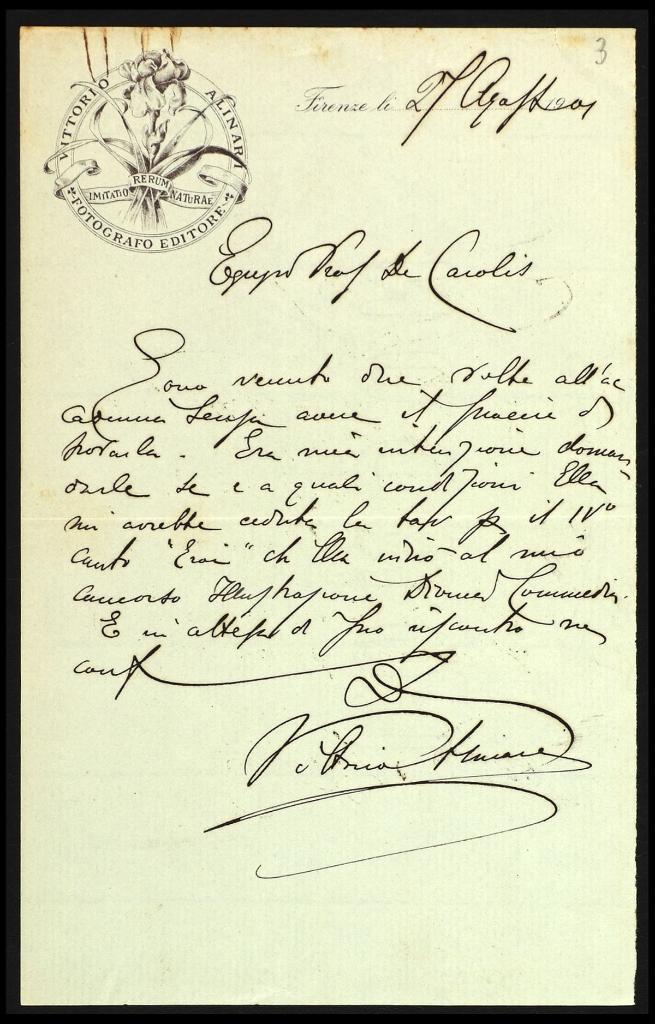 3
VITTORIO ALINARI
IMITATIO RERUM NATURAE
FOTOGRAFO EDITORE
Firenze li 27 Agosto 1901
Egregio Prof De Carolis
Sono venuto due volte all'ac
cademia senza avere il piacere di
trovarla. Era mia intenzione doman-
darle se e a quali condizioni Ella
mi avrebbe ceduta la tav p il IVº
canto "Eroi" ch Ella inviò al mio
concorso Illustrazione Divina Commedia.
E in attesa di suo riscontro me
conf
Vittorio Alinari